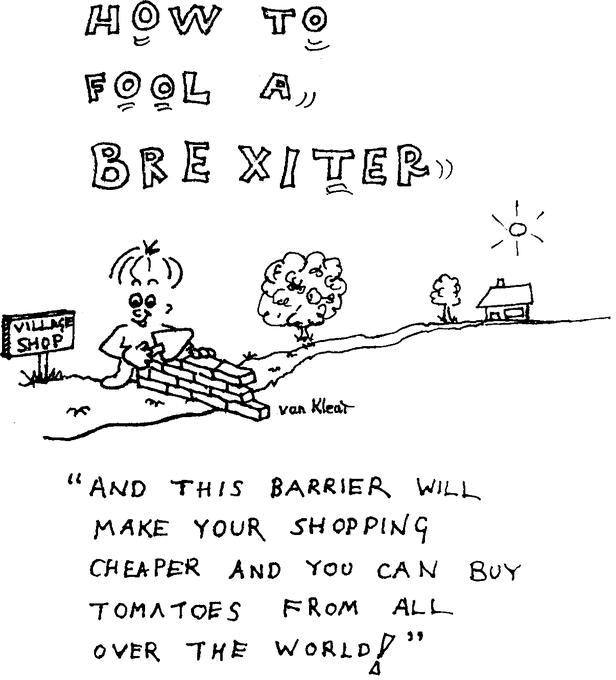 HOW TO
FOOL A
BREXITER
VILLAGE
SHOP
van Kleat
"AND THIS BARRIER WILL
MAKE YOUR SHOPPING
CHEAPER AND YOU CAN BUY
TOMATOES FROM ALL
OVER THE WORLD!"